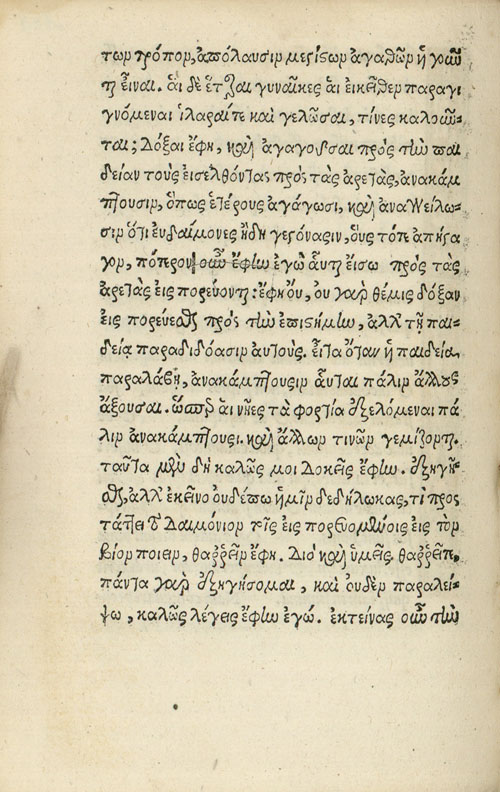 των τρόπον, ἀπόλαυσιν μεγίστων ἀγαθῶν ἡγοῦν
ται εἶναι. ἁι δὲ ἕτεραι γυναῖκες ἁι ἐκεῖθεν παραγι
γνόμεναι ἱλαραί τε καὶ γελῶσαι, τίνες καλοῦν
ται; Δόξαι ἔφη, καὶ ἀγαγοῦσαι πρὸς τὴν παι
δείαν τοὺς εἰσελθόντας πρὸς τὰς ἀρετὰς, ἀνακάμ
πτουσιν, ὅπως ἑτέρους ἀγάγωσι, καὶ ἀναγγείλω-
σιν ὅτι ἐυδαίμονες ἤδη γεγόνασιν, ὅυς τότε ἀπήγα
γον, πότερον οὖν ἔφην ἐγὼ ἇυται εἴσω πρὸς τὰς
ἀρετὰς εἰς πορεύονται: ἔφη ὄυ, ὀυ γὰρ θέμις δόξαν
εἰς πορεύεσθαι πρὸς τὴν ἐπιστήμην, ἀλλὰ τῇ παι-
δείᾳ παραδιδόασιν ἀυτούς. εἶτα ὅταν ἡ παιδεία
παραλάβῃ, ἀνακάμπτουσιν ἇυται πάλιν ἄλλους
ἄξουσαι. ὥσπερ ἁι νῆες τὰ φορτία ἐξελόμεναι πά
λιν ἀνακάμπτουσι. καὶ ἄλλων τινῶν γεμίζονται.
ταῦτα μὲν δὴ καλῶς μοι Δοκεῖς ἔφην. ἐξηγεῖ-
σθαι, ἀλλ' ἐκεῖνο ὀυδέπω ἡμῖν δεδήλωκας, τί προς
τάττει τὸ Δαιμόνιον τοῖς εἰς πορευομένοις εἰς τὸν
βίον ποιεῖν, θαῤῥεῖν ἔφη. Διὸ καὶ ὑμεῖς θαῤῥεῖτε,
πάντα γὰρ ἐξηγήσομαι, καὶ ὀυδὲν παραλεί-
ψω, καλῶς λέγεις ἔφην ἐγώ. ἐκτείνας οὖν τὴν